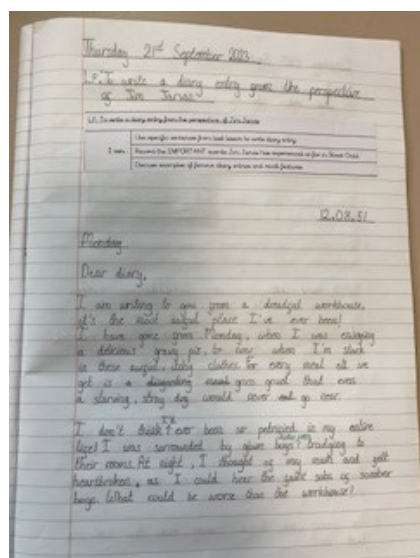 Thursday 21st September 2023
L.P: To write a diary entry from the perspective
of Jim Jarvis
L.P: To write a diary entry from the perspective of Jim Jarvis
Use specific sentences from last lesson to write diary entry
I can: Record the IMPORTANT events Jim Jarvis has experienced so far in Street Child
Discuss examples of famous diary entries and mark features
12.08.51
Monday
Dear diary,
I am writing to you from a dreadful workhouse,
it's the most awful place I've ever been!
I have gone from Monday, when I was enjoying
a delicious gravy pie, to now when I'm stuck
in these awful, itchy clothes. For every meal all we
get is a disgusting gross gruel that even
a starving, stray dog would never go near.
I don't think I've ever been so petrified in my entire
life! I was surrounded by glum boys trudging to
their rooms. At night, I thought of my mum and felt
heartbroken, as I could hear the quiet sobs of sombre
boys. What could be worse than the workhouse?